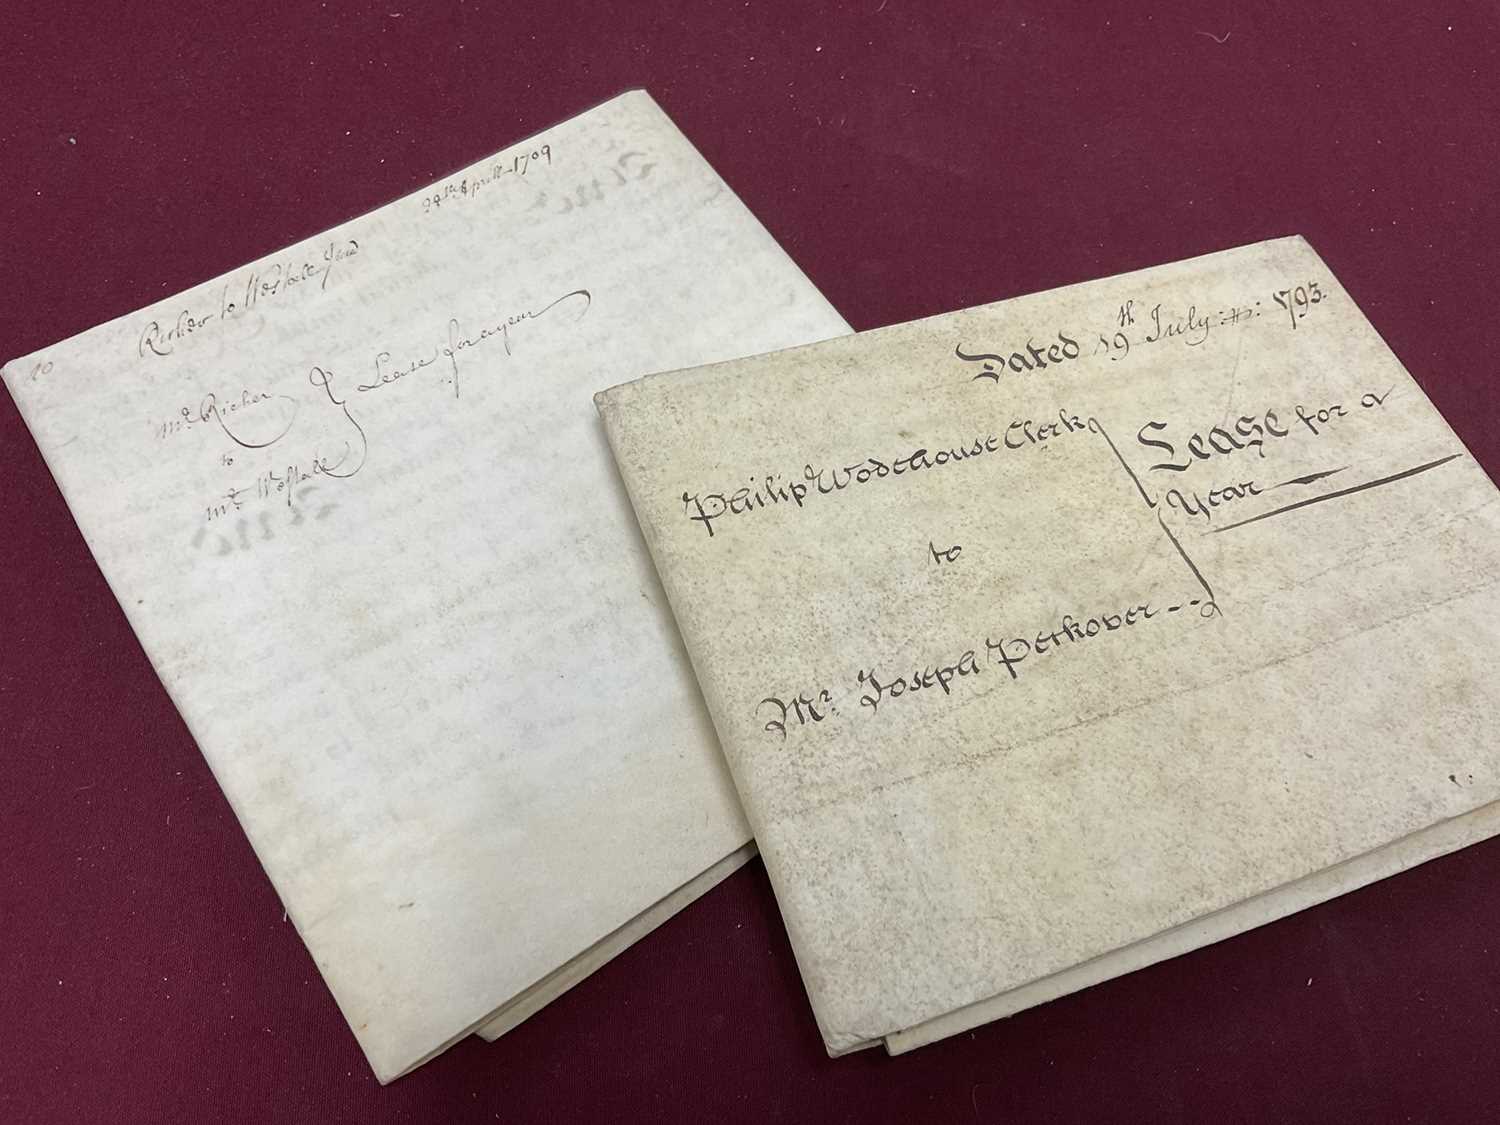 24th Aprill 1709
Richer to Westall
10
Mr. Richer
to
Mr. Westall
Lease for a year
Dated 19th July :#: 1793.
Philip Wodehouse Clerk
to
Mr. Joseph Perkover --
Lease for a
Year